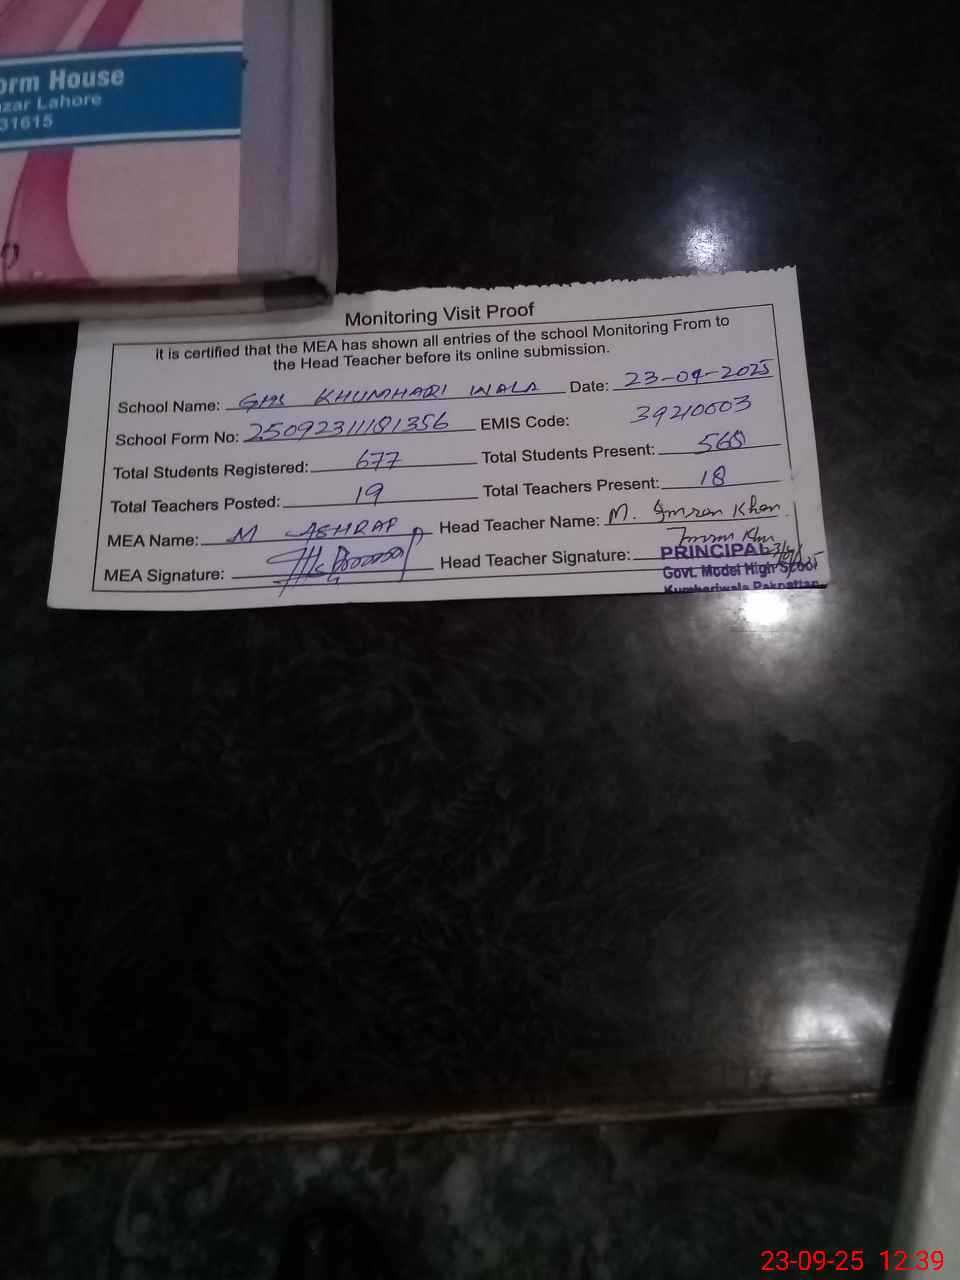 orm House
zar Lahore
31615
Monitoring Visit Proof
it is certified that the MEA has shown all entries of the school Monitoring From to
the Head Teacher before its online submission.
School Name: GHS KHUMHARI WALA Date: 23-09-2025
School Form No: 25092311181356 EMIS Code: 39210003
Total Students Registered: 677 Total Students Present: 568
Total Teachers Posted: 19 Total Teachers Present: 18
MEA Name: M ASHRAF Head Teacher Name: M. Imran Khan.
MEA Signature: Head Teacher Signature:
PRINCIPAL
Govt. Model High School
Kumhariwala Pakpattan
23-09-25 12:39